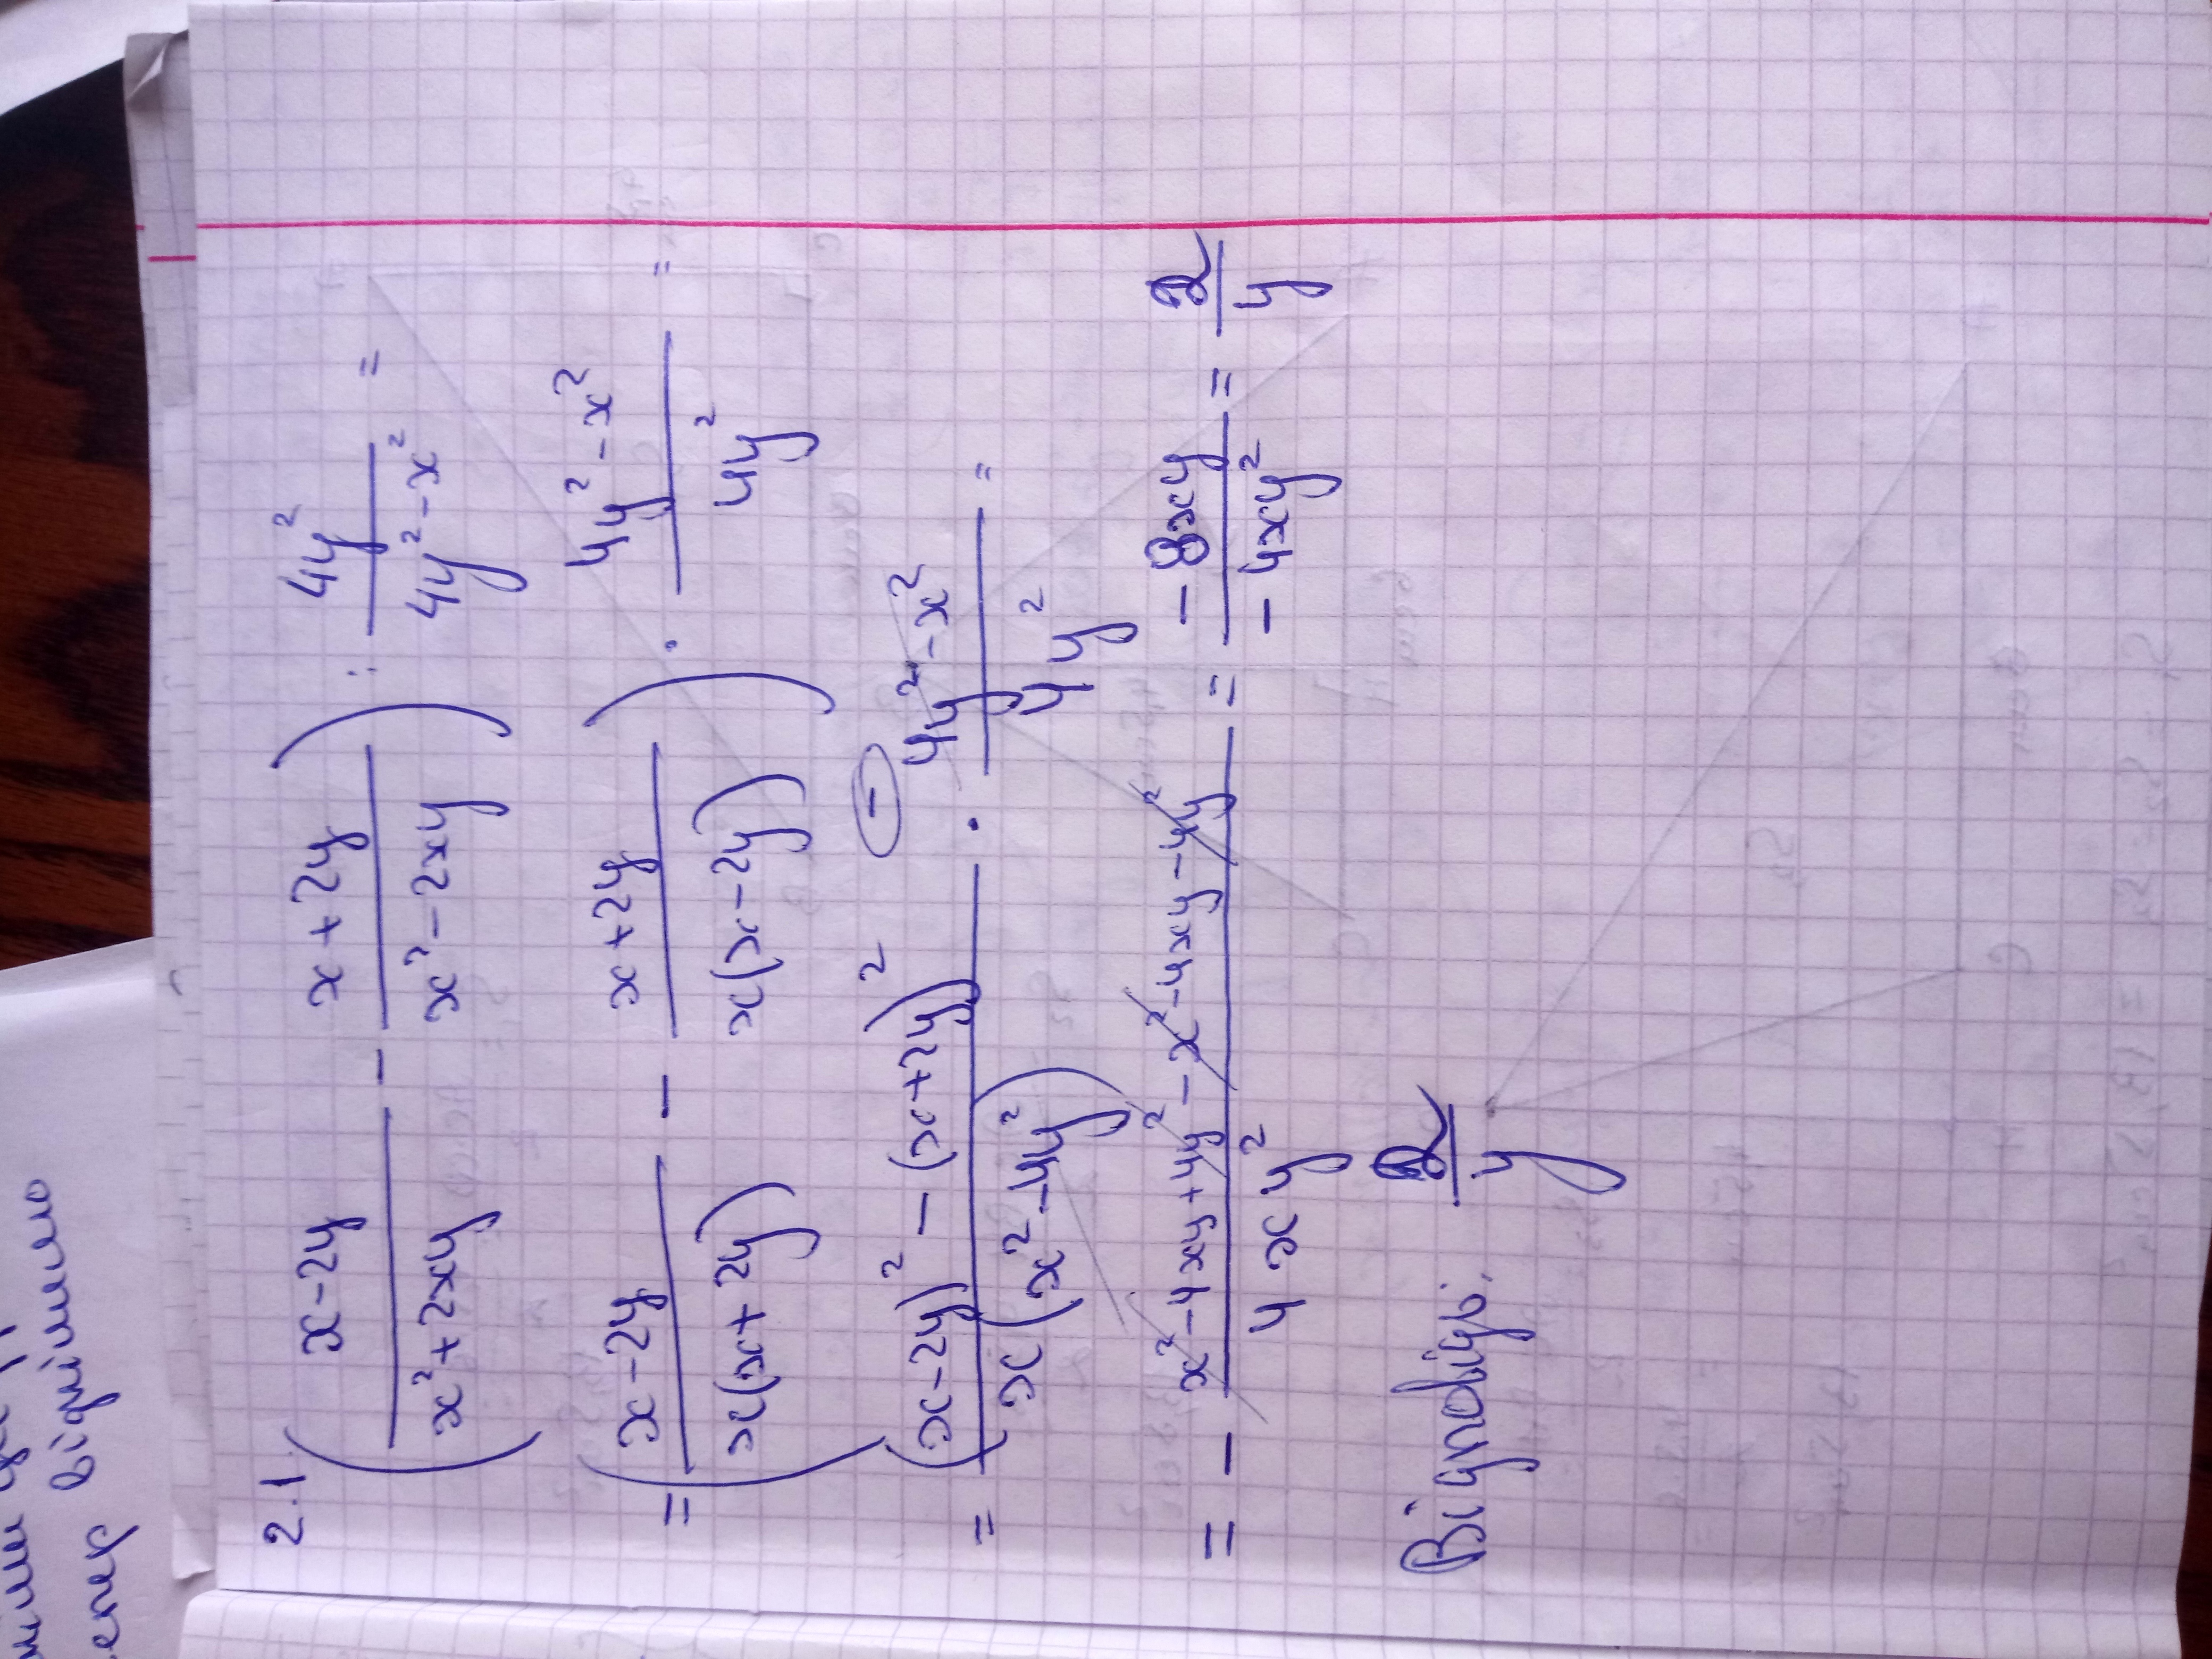 2.1 ( (x-2y)/(x²+2xy) - (x+2y)/(x²-2xy) ) : 4y²/(4y²-x²) =
= ( (x-2y)/(x(x+2y)) - (x+2y)/(x(x-2y)) ) · (4y²-x²)/(4y²) =
= ((x-2y)² - (x+2y)²)/(x(x²-4y²)) · (-) (4y²-x²)/(4y²) =
= - (x²-4xy+4y²-x²-4xy-4y²)/(4xy²) = (-8xy)/(-4xy²) = 2/y
Відповідь: 2/y
відрізняємо